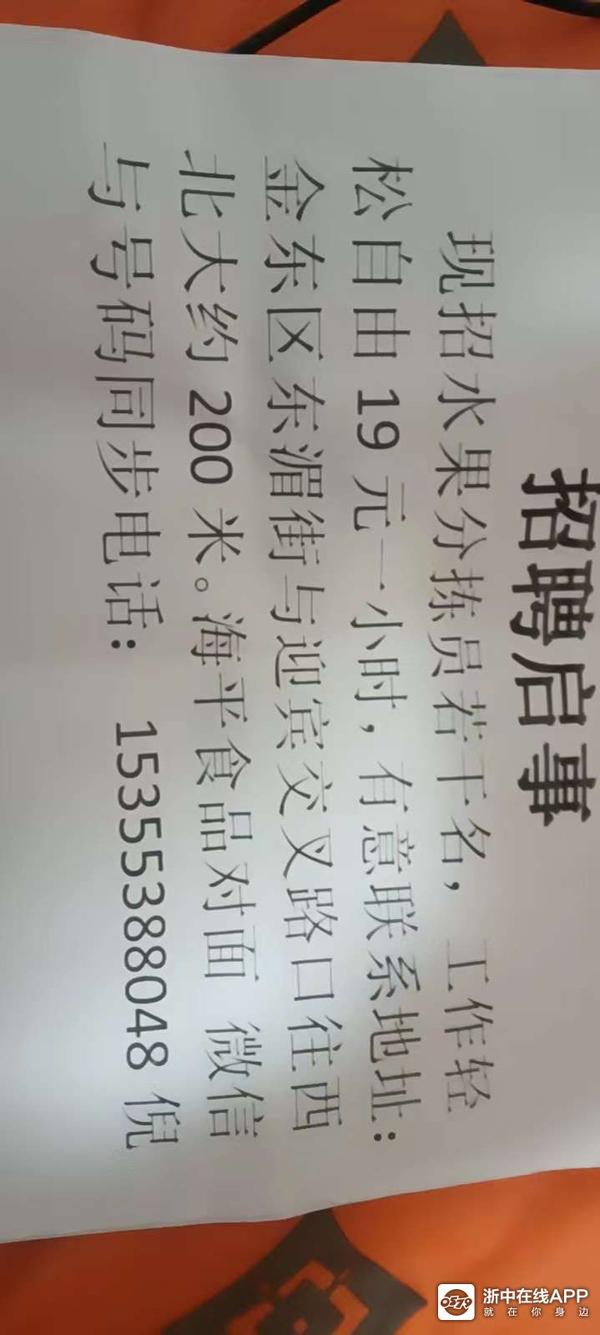 招聘启事
现招水果分拣员若干名，工作轻
松自由 19 元一小时，有意联系地址：
金东区东湄街与迎宾交叉路口往西
北大约 200 米。海平食品对面 微信
与号码同步电话： 15355388048 倪
浙中在线APP
就在你身边